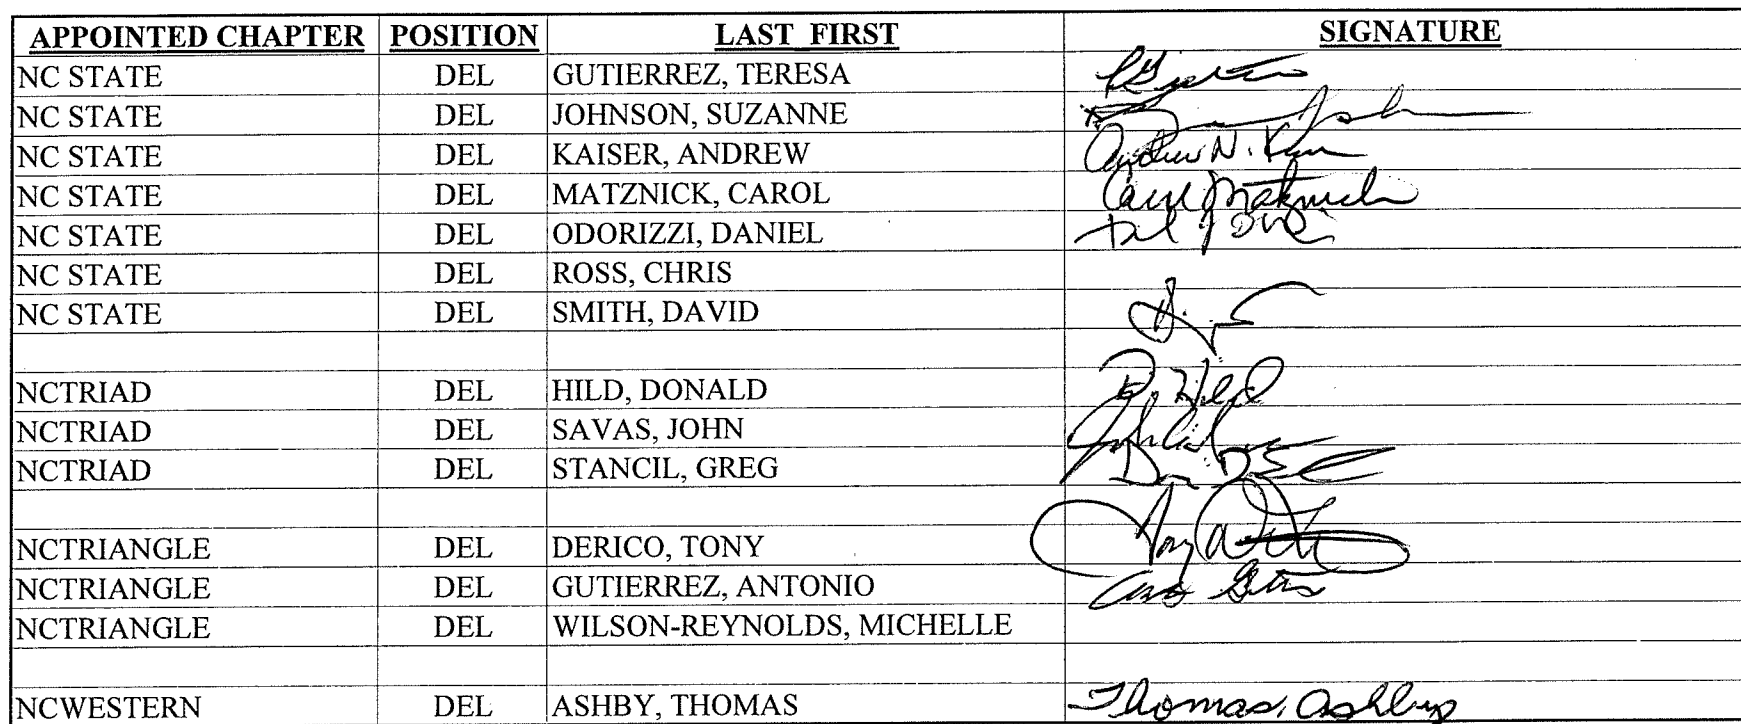 APPOINTED CHAPTER POSITION LAST FIRST SIGNATURE
NC STATE DEL GUTIERREZ, TERESA
NC STATE DEL JOHNSON, SUZANNE
NC STATE DEL KAISER, ANDREW Andrew N.
NC STATE DEL MATZNICK, CAROL Carol Matznick
NC STATE DEL ODORIZZI, DANIEL
NC STATE DEL ROSS, CHRIS
NC STATE DEL SMITH, DAVID
NCTRIAD DEL HILD, DONALD Hild
NCTRIAD DEL SAVAS, JOHN
NCTRIAD DEL STANCIL, GREG
NCTRIANGLE DEL DERICO, TONY Tony
NCTRIANGLE DEL GUTIERREZ, ANTONIO
NCTRIANGLE DEL WILSON-REYNOLDS, MICHELLE
NCWESTERN DEL ASHBY, THOMAS Thomas Ashby